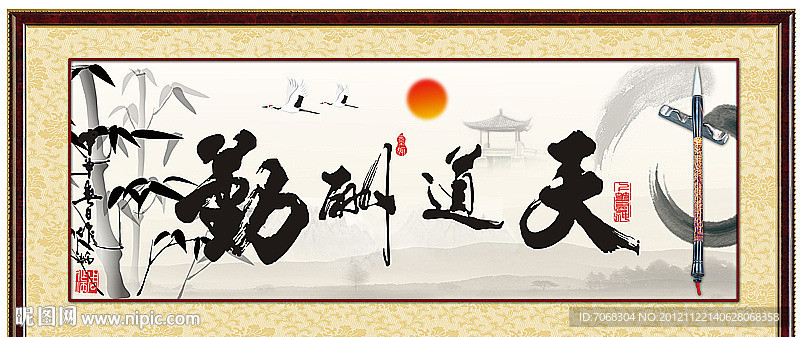 天道酬勤
昵图网 www.nipic.com
ID:7068304 NO:20121122140628068358